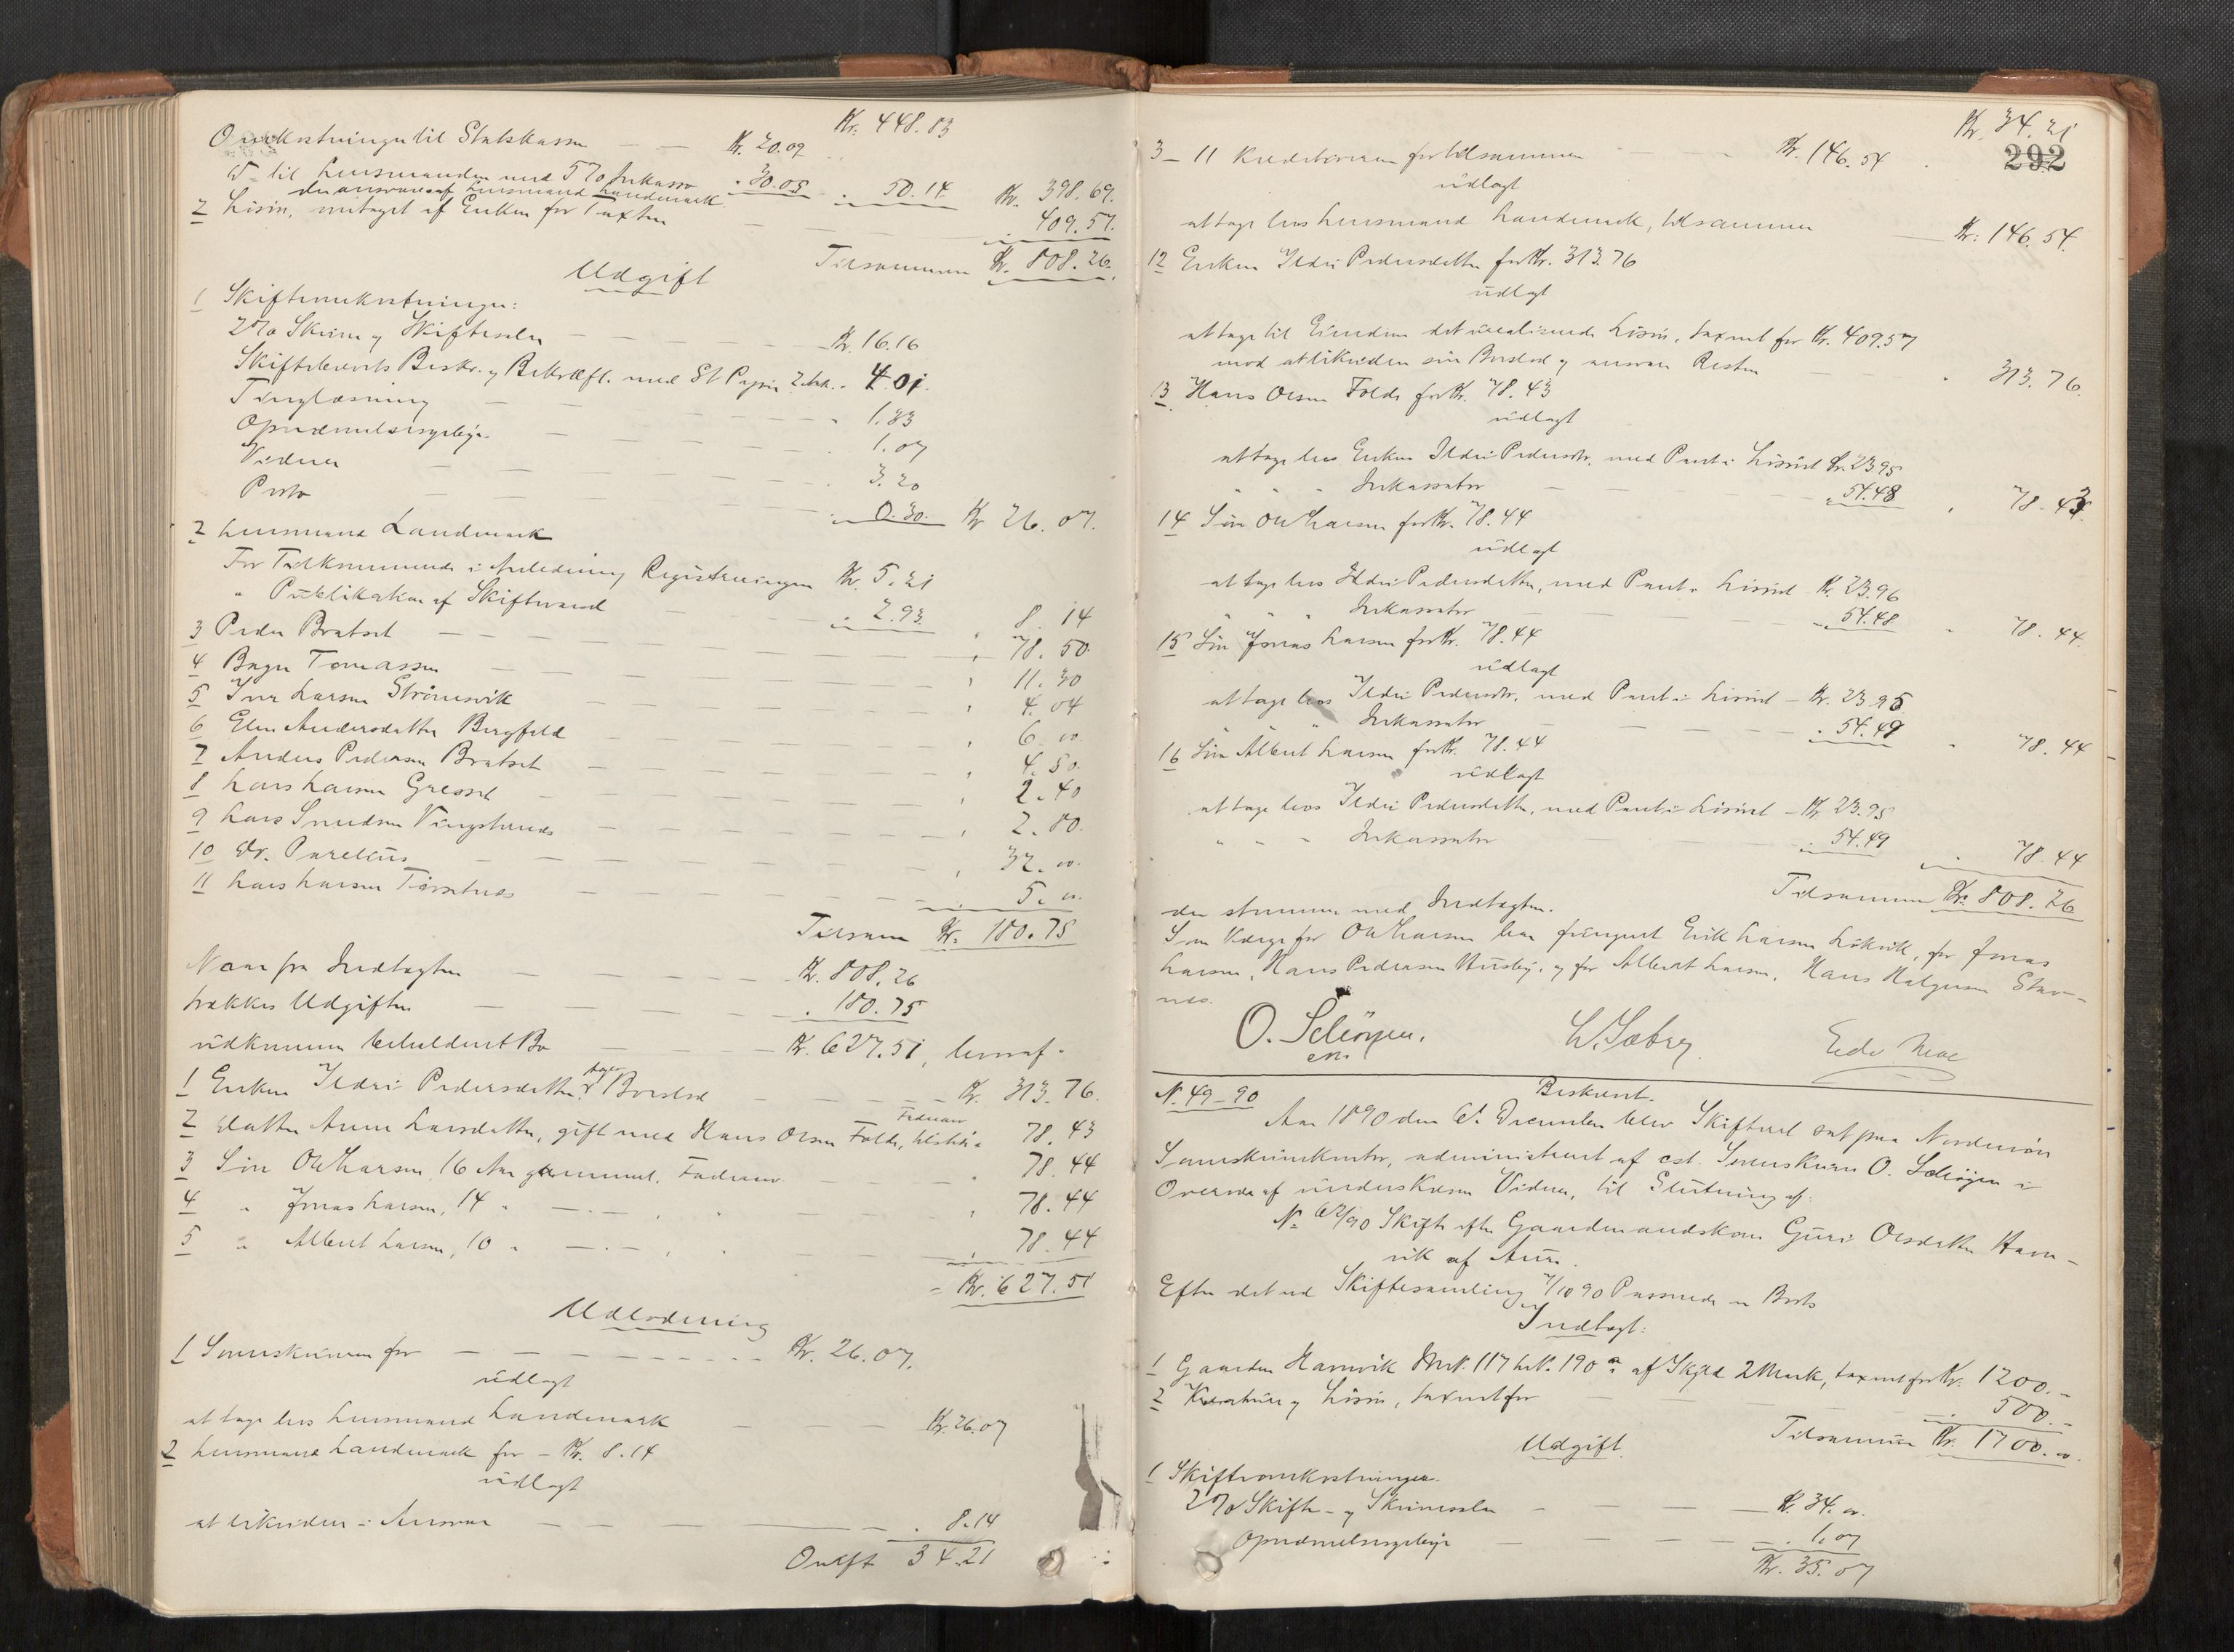 Kr. 448.83
Omkostninger til Statskassen — Kr. 20.09
D- til Lensmanden med 5% Inkasso " 30.05 " 50.14 Kr. 398.69.
der ansvares af Lensmand Landmark
2 Løsøre, modtaget af Enken for Taxten — 409.57.
Tilsammen Kr. 808.26.
Udgift
1 Skifteomkostninger:
2% Skriver og Skiftesalær — Kr. 16.16
Skiftebrevets Beskr. og Bekræft. med St Papir 4.01.
Tinglæsning — 1.33
Opnævnelsesgebyr — 1.07
Vidner — 3.20
Porto — 0.30. Kr 26.07.
2 Lensmand Landmark
For Tilkommende i Anledning Registreringen Kr. 5.21
" Publikation af Skiftevarsel 2.93. " 8.14
3 Peder Bratset — " 78.50.
4 Tomassen — " 11.30
5 Iver Larsen Strømsvik — " 4.04
6 Elen Andersdatter Bergfald — " 6. 00.
7 Anders Pedersen Bratset — " 4.50.
8 Lars Larsen Gresset — " 2.40
9 Lars Sivertsen Vingstrands — " 2.80.
10 Dr. Parelius — " 32. 00.
11 Lars Larsen — 5. 00.
Tilsam Kr. 180.75
Naar fra Indtægten — Kr. 808.26
trækkes Udgiften — . 180.75
udkommer beholdent Bo — Kr. 627.51, hvoraf:
1 Enken Ildri Pedersdatter tager i Boeslod — Kr. 313.76.
2 Datter Anne Larsdatter, gift med Hans Olsen Folde, tilstede Fædrearv 78.43
3 Søn Ole Larsen, 16 Aar gammel, Fædrearv — 78.44
4 " Jonas Larsen, 14 " — " 78.44
5 " Albert Larsen, 10 " — 78.44
= Kr. 627.51
Udlodning
1 Sorenskriveren for — Kr. 26.07.
udlagt
at tage hos Lensmand Landmark — Kr. 26.07
2 Lensmand Landmark for - Kr. 8.14
udlagt
at likvidere i Ansvar — 8.14
Overft 34.21
Kr. 34.21
292
3-11 Kreditorerne for tilsammen — Kr. 146.54
udlagt
at tage hos Lensmand Landmark, tilsammen — Kr: 146.54.
12 Enken Ildri Pedersdatter for Kr. 313.76
udlagt
at tage til Eiendom det urealiserede Løsøre, taxeret for Kr. 409.57
mod at likvidere sin Boeslod og ansvare Resten — 313.76.
13 Hans Olsen Folde for Kr. 78.43
udlagt
at tage hos Enken Ildri Pedersdtr. med Pant i Løsøret Kr. 23.95
" " " Inkassator " 54.48 " 78.43.
14 Søn Ole Larsen for Kr. 78.44
udlagt
at tage hos Ildri Pedersdatter, med Pant i Løsøret Kr. 23.96
" " " Inkassator — 54.48 " 78.44.
15 Søn Jonas Larsen for Kr. 78.44
udlagt
at tage hos Ildri Pedersdtr. med Pant i Løsøret - Kr. 23.95
" " " Inkassator — 54.49 " 78.44
16 Søn Albert Larsen for Kr. 78.44
udlagt
at tage hos Ildri Pedersdatter, med Pant i Løsøret - Kr. 23.95
" " " Inkassator — 54.49 78.44
Tilsammen Kr. 808.26
der stemmer med Indtægten.
Som Værge for Ole Larsen har fungeret Erik Larsen Løkvik, for Jonas
Larsen, Hans Pedersen Husby, og for Albert Larsen, Hans Halgersen Stav-
nes.
O. Schiøtz
W. Sæbøe
N. 49-90
Beskrevet.
Aar 1890 den 6t December blev Skifteret sat paa Nordmøre
Sorenskriverkontor, administreret af cst. Sorenskriver O. i
Overvær af underskrevne Vidner, til Slutning af:
N. 62/90 Skifte efter Gaardmandskone Guri Olsdatter Havn-
vik af Aure.
Efter det ved Skiftesamling 7/10 90 Passerede er Boets
Indtægt:
1 Gaarden Havnvik Mn. 117 Ln. 190 a af Skyld 2 Mark, taxeret for Kr. 1200.-
2 Kreaturer og Løsøre, taxeret for — 500.-
Tilsammen Kr. 1700. 00
Udgift
1 Skifteomkostninger.
2% Skifte- og Skriversalær — Kr. 34. 00.
Opnævnelsesgebyr — 1.07
Kr. 35.07